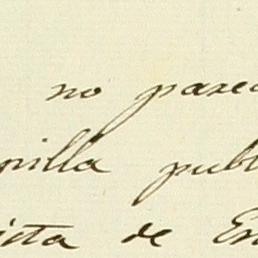 no parec
pilla publ
ista de En